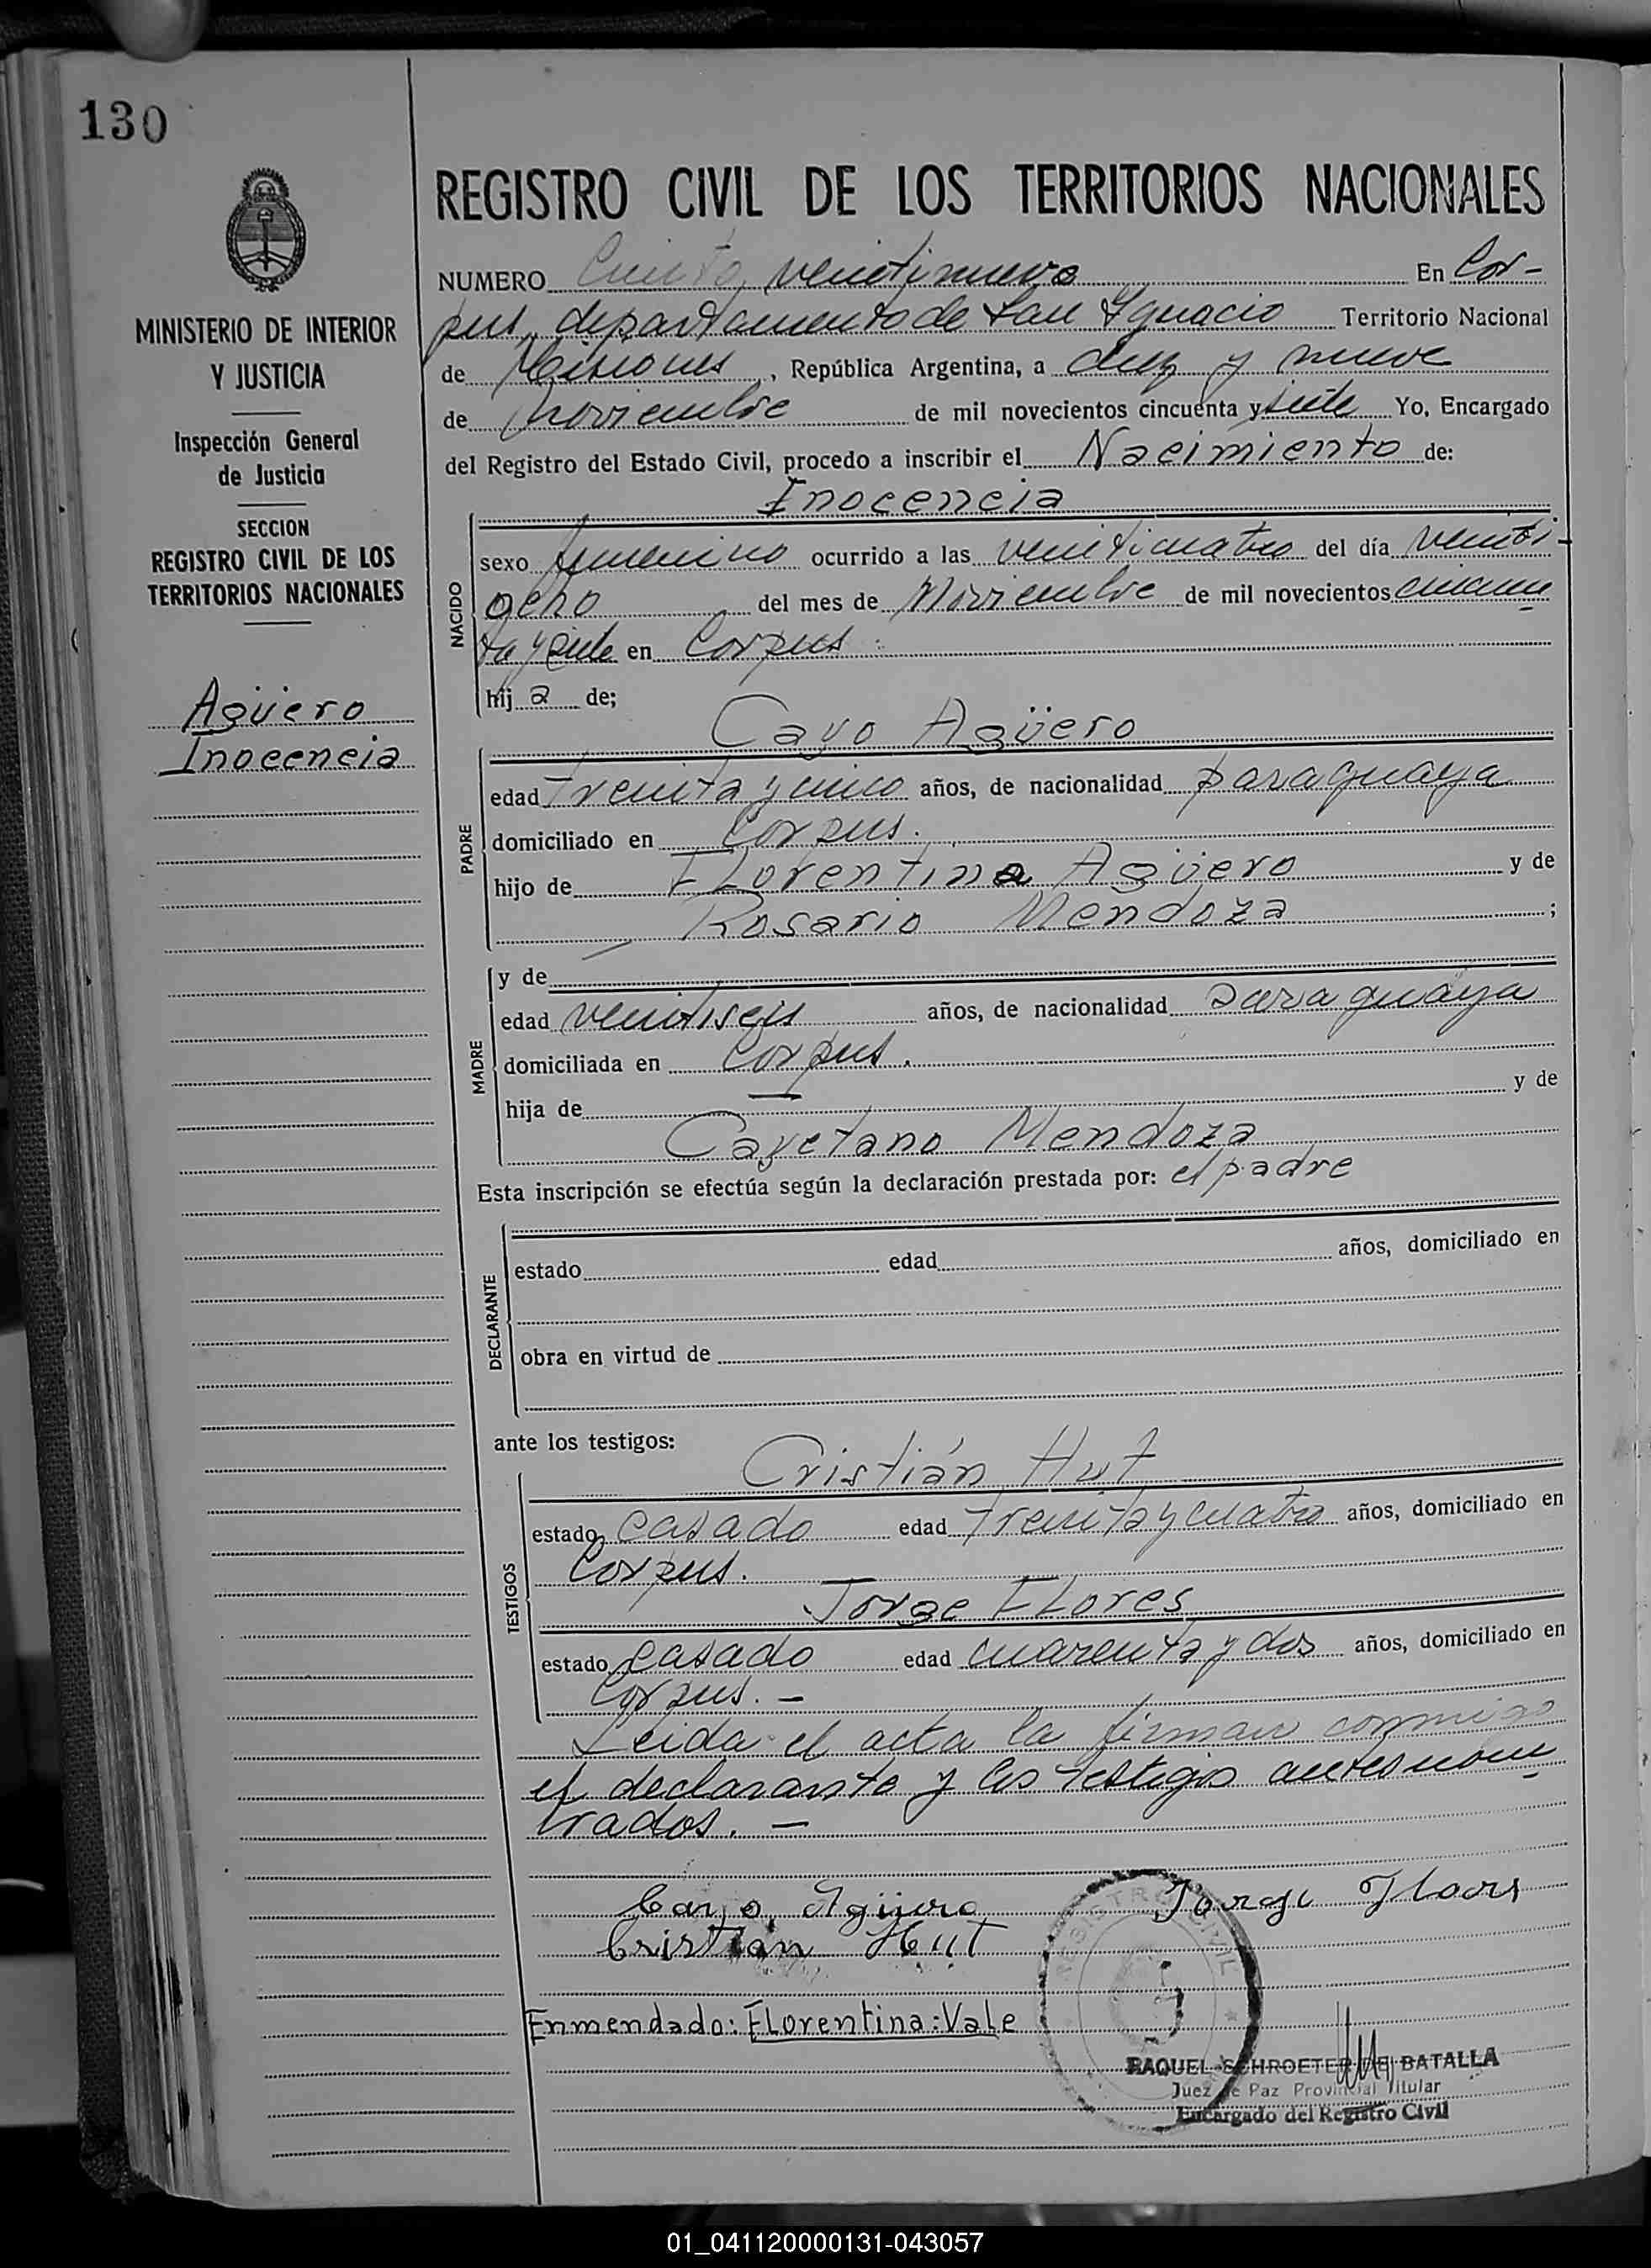 130
REGISTRO CIVIL DE LOS TERRITORIOS NACIONALES
MINISTERIO DE INTERIOR
Y JUSTICIA
Inspección General
de Justicia
SECCION
REGISTRO CIVIL DE LOS
TERRITORIOS NACIONALES
Agüero
Inocencia
NUMERO Ciento, veintinueve En Cor-
pus, departamento de San Ignacio Territorio Nacional
de Misiones, República Argentina, a diez y nueve
de noviembre de mil novecientos cincuenta y siete Yo, Encargado
del Registro del Estado Civil, procedo a inscribir el Nacimiento de:
Inocencia
NACIDO
sexo femenino ocurrido a las veinticuatro del día veinti-
ocho del mes de Noviembre de mil novecientos cincuen
ta y siete en Corpus.
hij a de;
Cayo Agüero
PADRE
edad treinta y cinco años, de nacionalidad paraguaya
domiciliado en Corpus.
hijo de Florentina Agüero y de
Rosario Mendoza ;
MADRE
y de
edad veintiseis años, de nacionalidad paraguaya
domiciliada en Corpus.
hija de y de
Cayetano Mendoza
Esta inscripción se efectúa según la declaración prestada por: el padre
DECLARANTE
estado edad años, domiciliado en
obra en virtud de
ante los testigos:
Cristián Hut
TESTIGOS
estado casado edad treinta y cuatro años, domiciliado en
Corpus.
Jorge Flores
estado casado edad cuarenta y dos años, domiciliado en
Corpus. –
Leida el acta la firman conmigo
el declarante y los testigos antes nom
brados. –
Cayo Agüero Jorge Flores
Cristián Hut
REGISTRO CIVIL
Enmendado: Florentina: Vale
RAQUEL SCHROETER DE BATALLA
Juez de Paz Provincial Titular
Encargado del Registro Civil
01_041120000131-043057